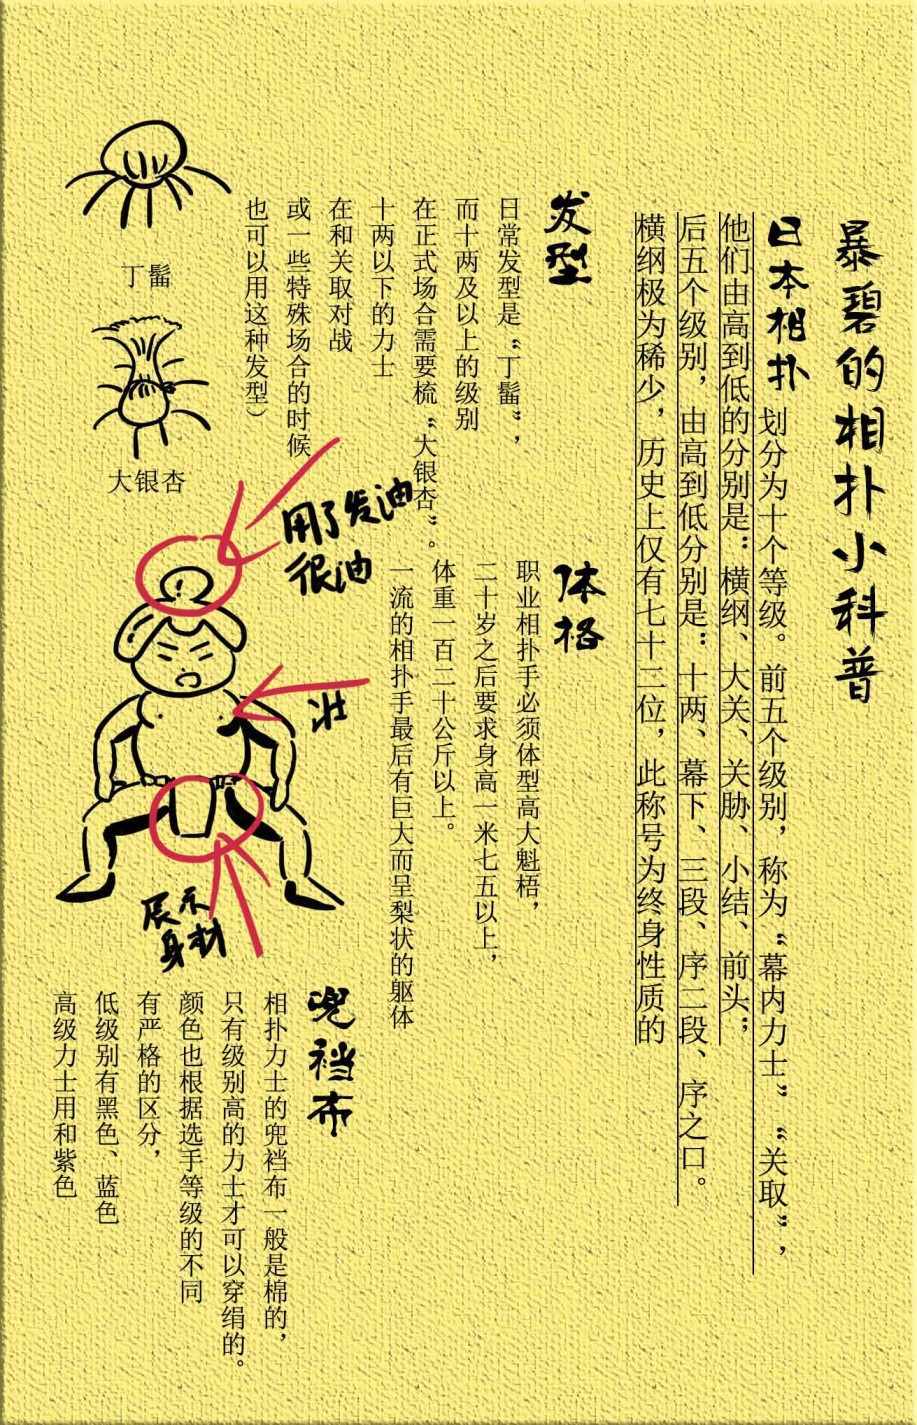 暴碧的相扑小科普
日本相扑 划分为十个等级。前五个级别，称为“幕内力士”“关取”，
他们由高到低的分别是：横纲、大关、关胁、小结、前头；
后五个级别，由高到低分别是：十两、幕下、三段、序二段、序之口。
横纲极为稀少，历史上仅有七十二位，此称号为终身性质的
发型
日常发型是“丁髷”，
而十两及以上的级别
在正式场合需要梳“大银杏”。
十两以下的力士
在和关取对战
或一些特殊场合的时候
也可以用这种发型）
丁髷
大银杏
用了发油
很油
体格
职业相扑手必须体型高大魁梧，
二十岁之后要求身高一米七五以上，
体重一百二十公斤以上。
一流的相扑手最后有巨大而呈梨状的躯体
壮
展示
身材
兜裆布
相扑力士的兜裆布一般是棉的，
只有级别高的力士才可以穿绢的。
颜色也根据选手等级的不同
有严格的区分，
低级别有黑色、蓝色
高级力士用和紫色